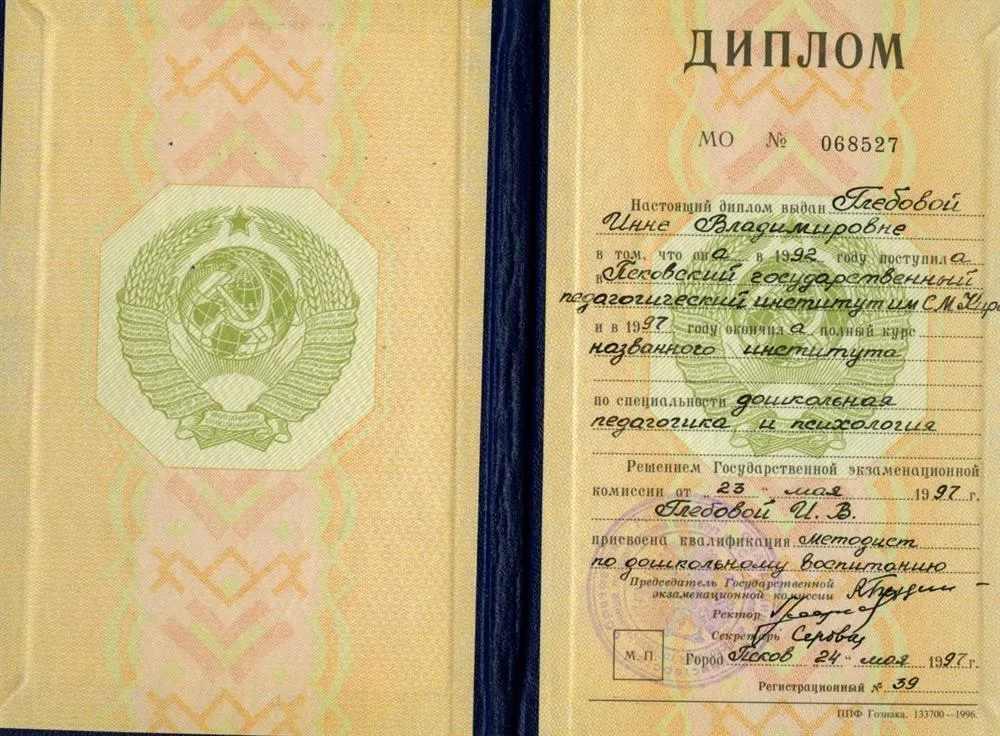 ДИПЛОМ
МО № 068527
Настоящий диплом выдан Глебовой
Инне Владимировне
в том, что она в 1992 году поступила
в Псковский государственный
педагогический институт им С.М. Кир
и в 1997 году окончила полный курс
названного института
по специальности дошкольная
педагогика и психология
Решением Государственной экзаменационной
комиссии от „23" мая 1997 г.
Глебовой И. В.
присвоена квалификация методист
по дошкольному воспитанию
Председатель Государственной
экзаменационной комиссии
Ректор
Секретарь
М. П.
Город Псков 24 " мая 1997 г.
Регистрационный № 39
ППФ Гознака. 133700—1996.